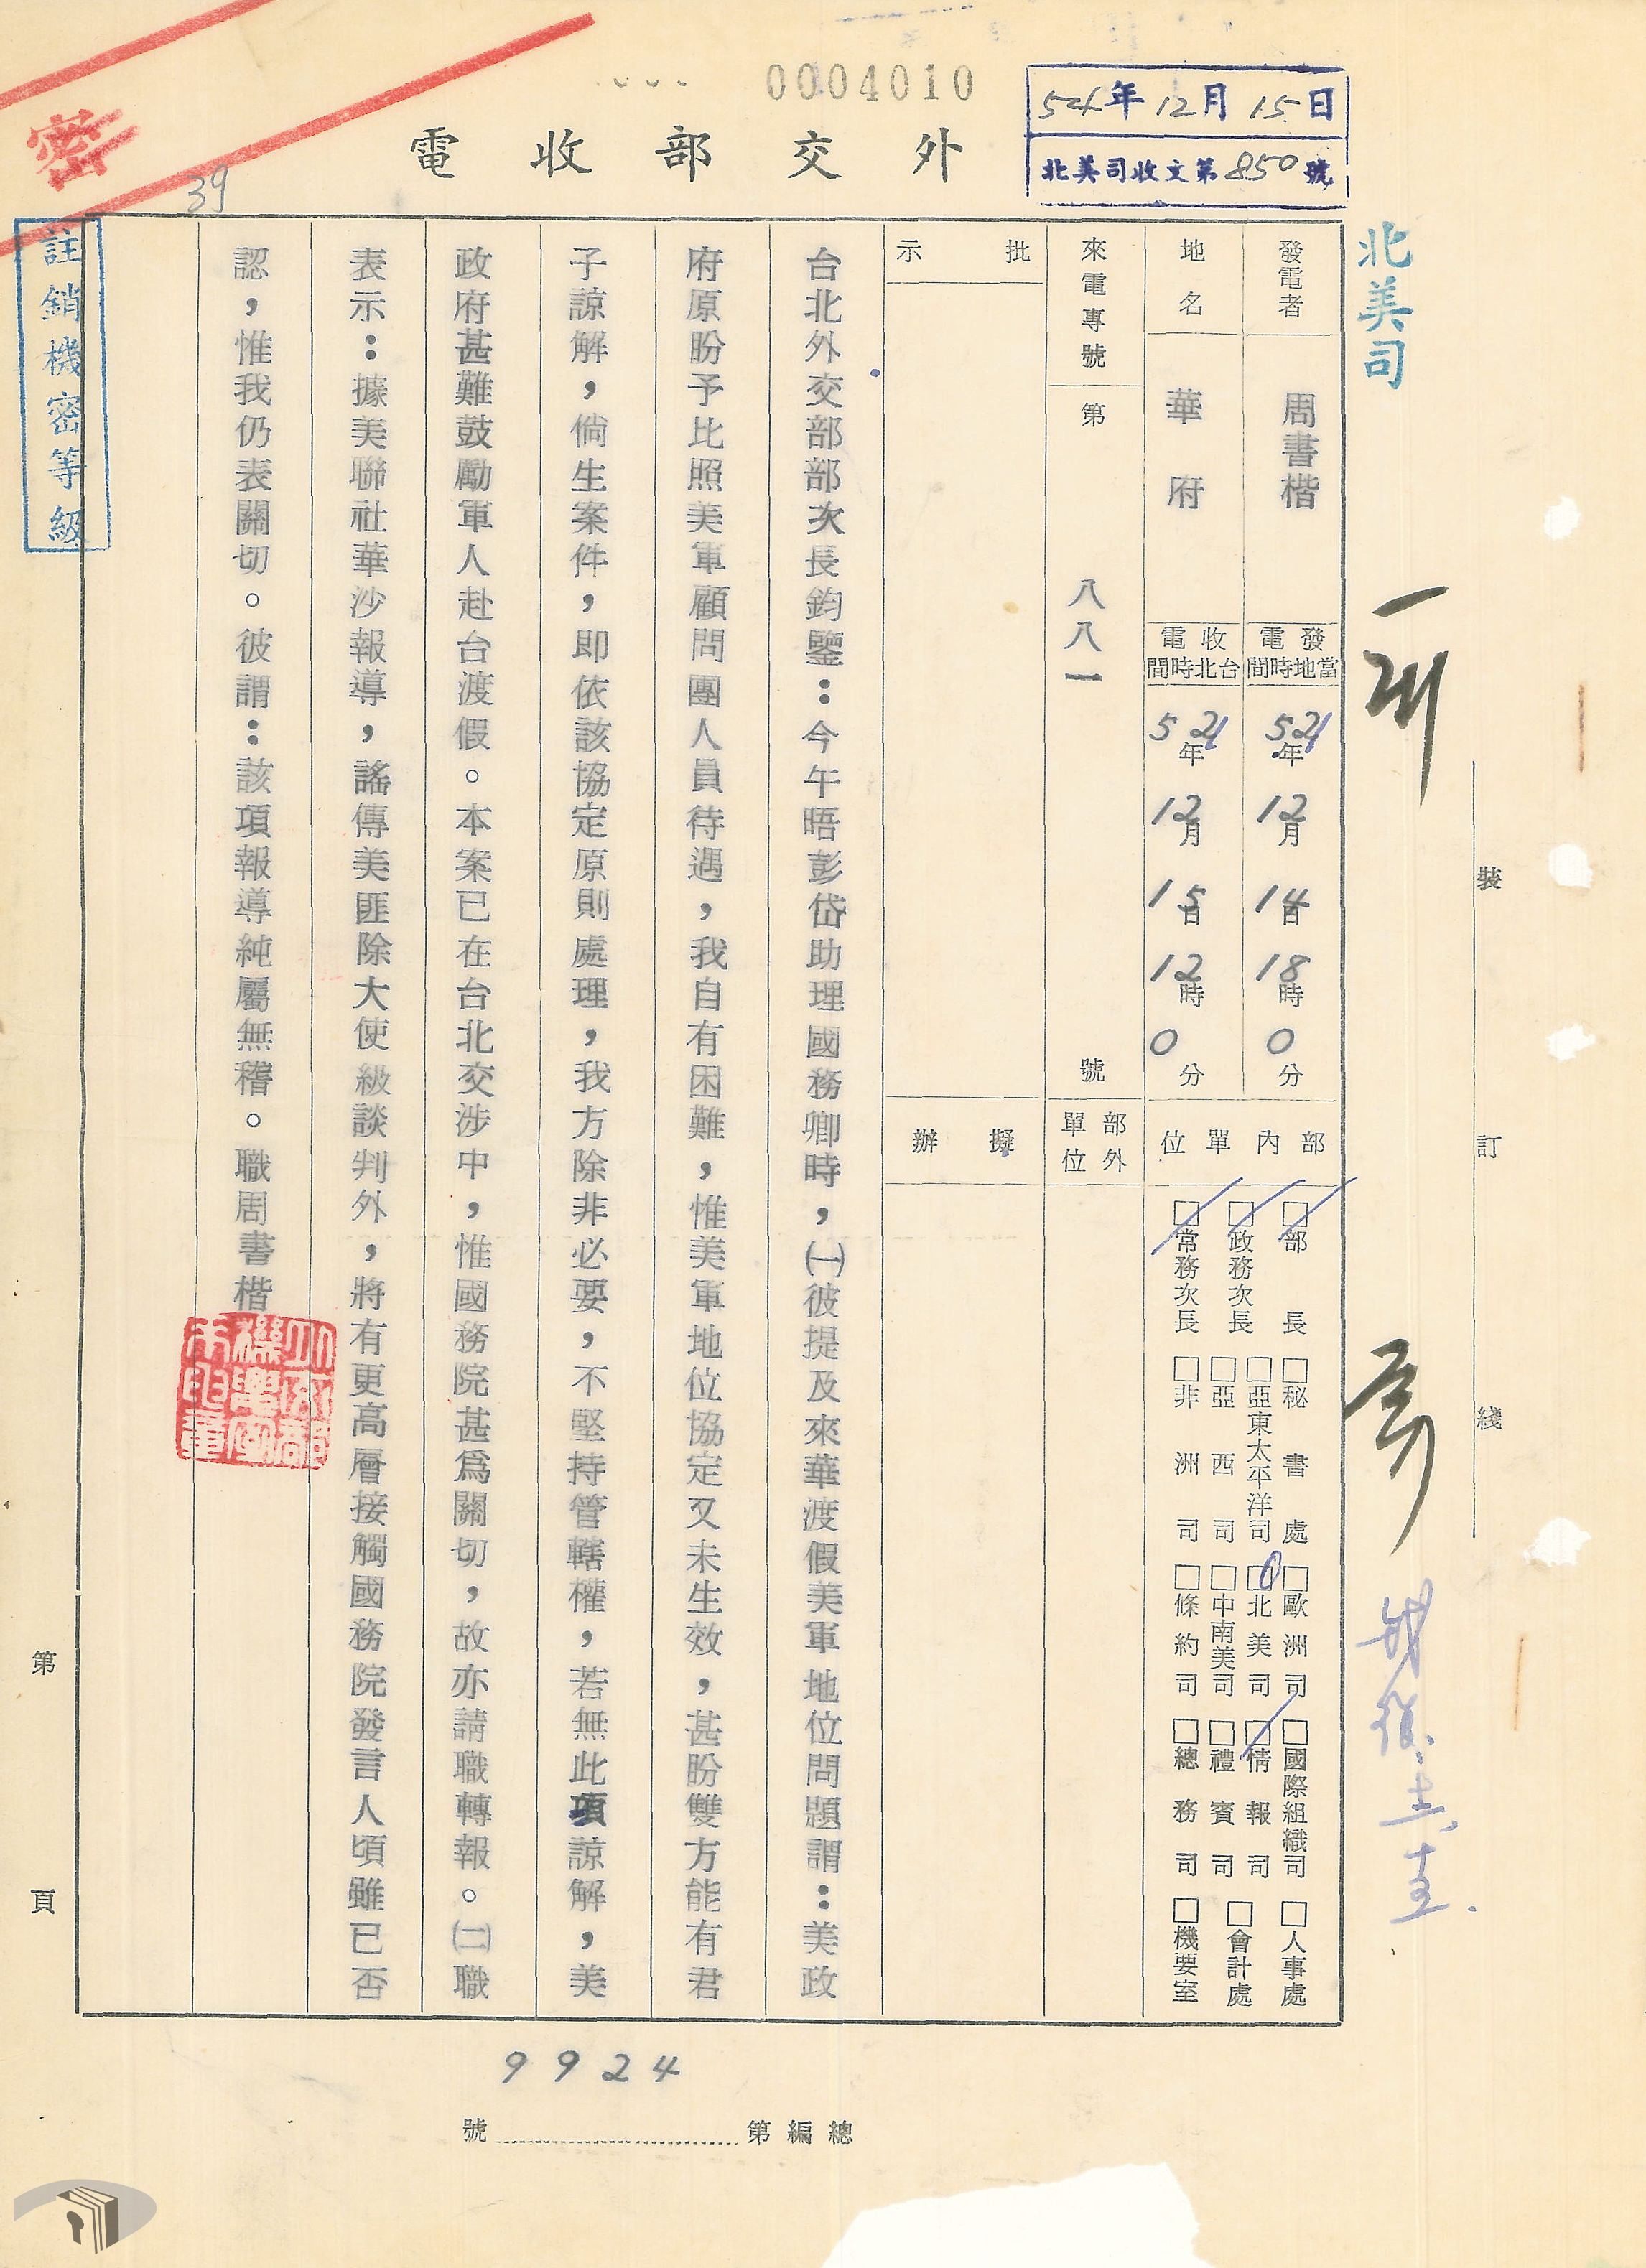 0004010
54年12月15日
北美司收文第850號
外交部收電
密
39
註銷機密等級
北美司
發電者
周書楷
發電當地時間
54年12月14日18時0分
地名
華府
收電台北時間
54年12月15日12時0分
來電專號
第八八一號
部內單位
□部長
□政務次長
□常務次長
□秘書處
□亞東太平洋司
□亞西司
□非洲司
□歐洲司
□北美司
□中南美司
□條約司
□國際組織司
□情報司
□禮賓司
□總務司
□人事處
□會計處
□機要室
部外單位
批示
擬辦
台北外交部部次長鈞鑒：今午晤彭岱助理國務卿時，㈠彼提及來華渡假美軍地位問題謂：美政
府原盼予比照美軍顧問團人員待遇，我自有困難，惟美軍地位協定又未生效，甚盼雙方能有君
子諒解，倘生案件，即依該協定原則處理，我方除非必要，不堅持管轄權，若無此項諒解，美
政府甚難鼓勵軍人赴台渡假。本案已在台北交涉中，惟國務院甚為關切，故亦請職轉報。㈡職
表示：據美聯社華沙報導，謠傳美匪除大使級談判外，將有更高層接觸國務院發言人頃雖已否
認，惟我仍表關切。彼謂：該項報導純屬無稽。職周書楷
裝
訂
綫
第頁
9924
總編第號